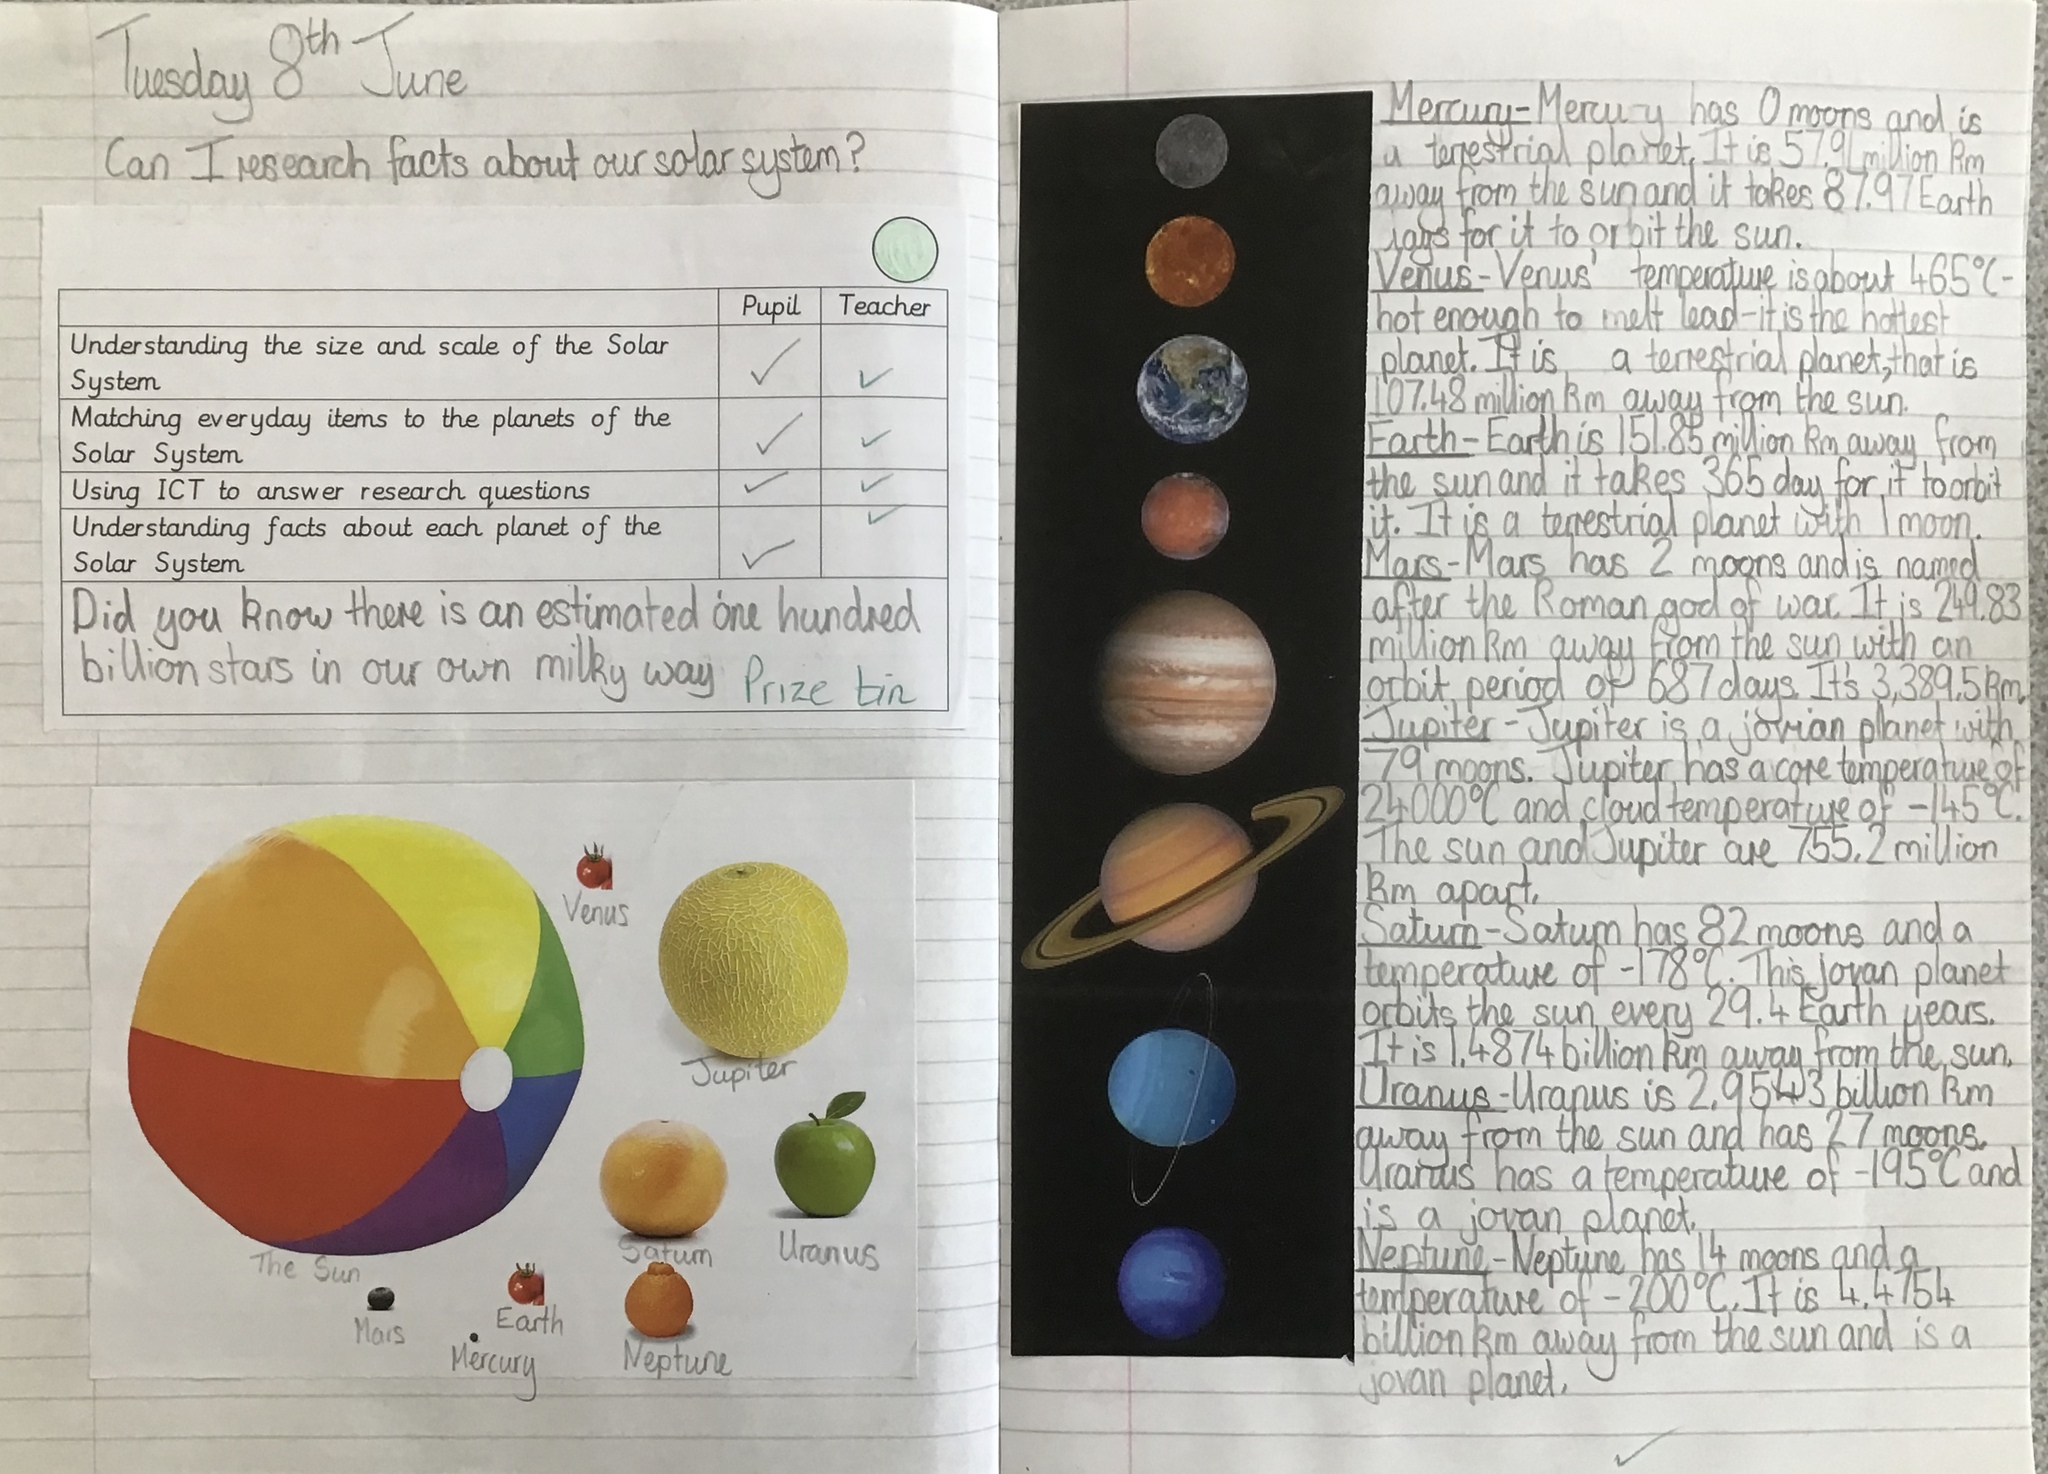 Tuesday 8th June
Can I research facts about our solar system?
Pupil Teacher
Understanding the size and scale of the Solar
System
Matching everyday items to the planets of the
Solar System
Using ICT to answer research questions
Understanding facts about each planet of the
Solar System
Did you know there is an estimated one hundred
billion stars in our own milky way Prize bin
Venus
Jupiter
Saturn
Uranus
The Sun
Mars
Earth
Mercury
Neptune
Mercury-Mercury has 0 moons and is
a terrestrial planet. It is 57.91 million km
away from the sun and it takes 87.97 Earth
days for it to orbit the sun.
Venus-Venus' temperature is about 465°C-
hot enough to melt lead-it is the hottest
planet. It is a terrestrial planet, that is
107.48 million km away from the sun.
Earth-Earth is 151.85 million km away from
the sun and it takes 365 day for it to orbit
it. It is a terrestrial planet with 1 moon.
Mars-Mars has 2 moons and is named
after the Roman god of war. It is 249.83
million km away from the sun with an
orbit period of 687 days. It's 3,389.5km.
Jupiter-Jupiter is a jovian planet with
79 moons. Jupiter has a core temperature of
24000°C and cloud temperature of -145°C.
The sun and Jupiter are 755.2 million
km apart.
Saturn-Saturn has 82 moons and a
temperature of -178°C. This jovan planet
orbits the sun every 29.4 Earth years.
It is 1.4874 billion km away from the sun.
Uranus-Uranus is 2.9543 billion km
away from the sun and has 27 moons.
Uranus has a temperature of -195°C and
is a jovan planet.
Neptune-Neptune has 14 moons and a
temperature of -200°C. It is 4.4754
billion km away from the sun and is a
jovan planet.